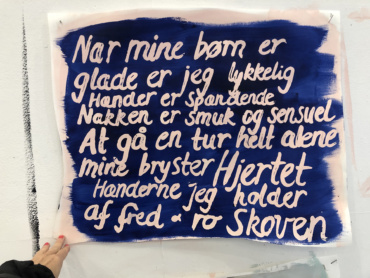 Når mine børn er
glade er jeg lykkelig
Hænder er spændende
Nakken er smuk og sensuel
At gå en tur helt alene
mine bryster Hjertet
Hænderne jeg holder
af fred & ro Skoven